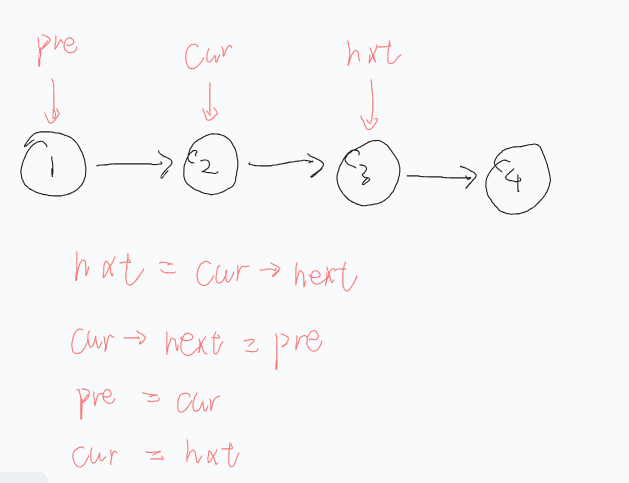 pre cur nxt
1 2 3 4
nxt = cur → next
cur → next = pre
pre = cur
cur = nxt